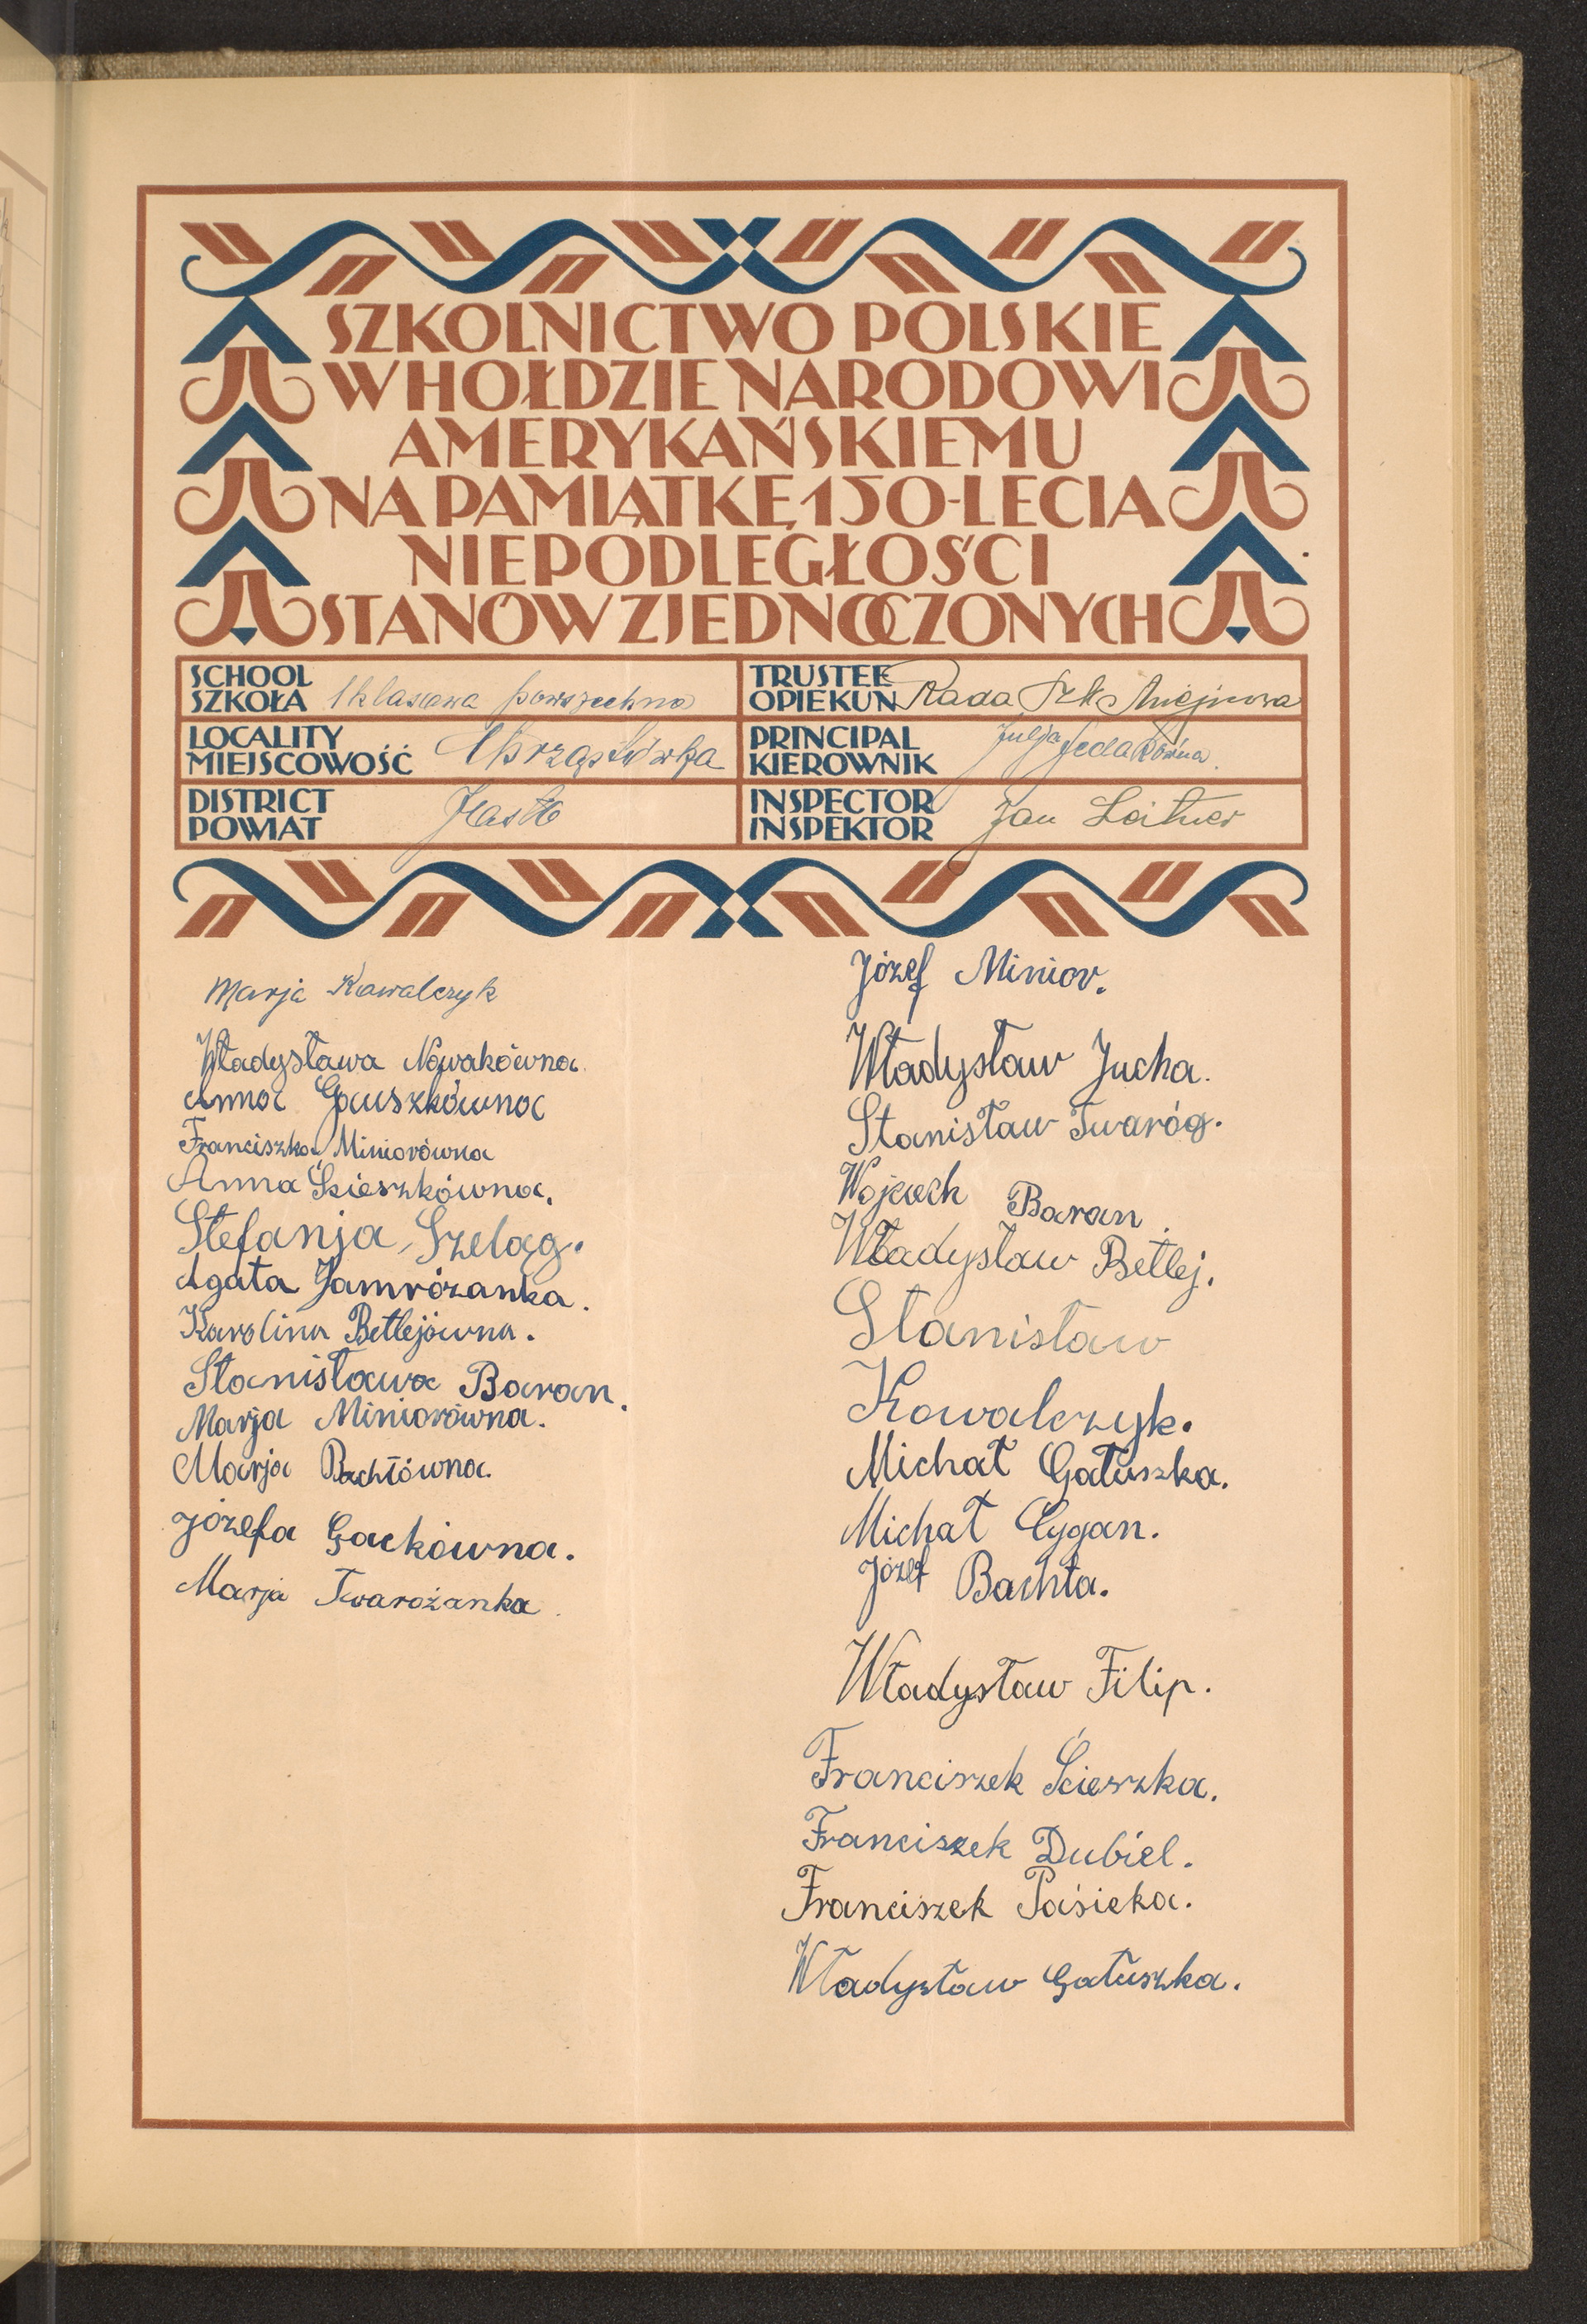 SZKOLNICTWO POLSKIE
W HOŁDZIE NARODOWI
AMERYKAŃSKIEMU
NA PAMIĄTKĘ 150-LECIA
NIEPODLEGŁOŚCI
STANÓW ZJEDNOCZONYCH
SCHOOL
SZKOŁA 1 klasowa powszechna
TRUSTEE
OPIEKUN Rada Szk. Miejscowa
LOCALITY
MIEJSCOWOŚĆ Chrząstówka
PRINCIPAL
KIEROWNIK Julja
DISTRICT
POWIAT Jasło
INSPECTOR
INSPEKTOR Jan Leitner
Marja Kowalczyk
Władysława Nowakówna.
Anna Gauszkówna
Franciszka Miniorówna
Anna Ścieszkówna.
Stefanja Szeląg.
Agata Jamrózanka.
Karolina Betlejówna.
Stanisława Baran.
Marja Miniorówna.
Marja Bachtówna.
Józefa Gackówna.
Marja Twarożanka.
Józef Minior.
Władysław Jucha.
Stanisław Twaróg.
Wojciech Baran.
Władysław Betlej.
Stanisław
Kowalczyk.
Michał Gałuszka.
Michał Cygan.
Józef Bachta.
Władysław Filip.
Franciszek Ścieszka.
Franciszek Dubiel.
Franciszek Paśieka.
Władysław Gałuszka.